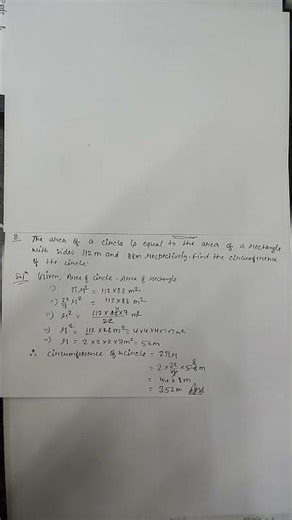 8. The area of a circle is equal to the area of a rectangle
with sides 112 m and 88m respectively. Find the circumference
of the circle.
Solⁿ Given, Area of circle = Area of rectangle
⇒ πr² = 112×88 m²
⇒ 22/7 r² = 112×88 m²
⇒ r² = 112×88×7/22 m²
⇒ r² = 112×28 m² = 4×4×4×7×7 m²
⇒ r = 2×2×2×7 m² = 56m
∴ Circumference of circle = 2πr
= 2×22/7×56 m
= 44×8m
= 352m